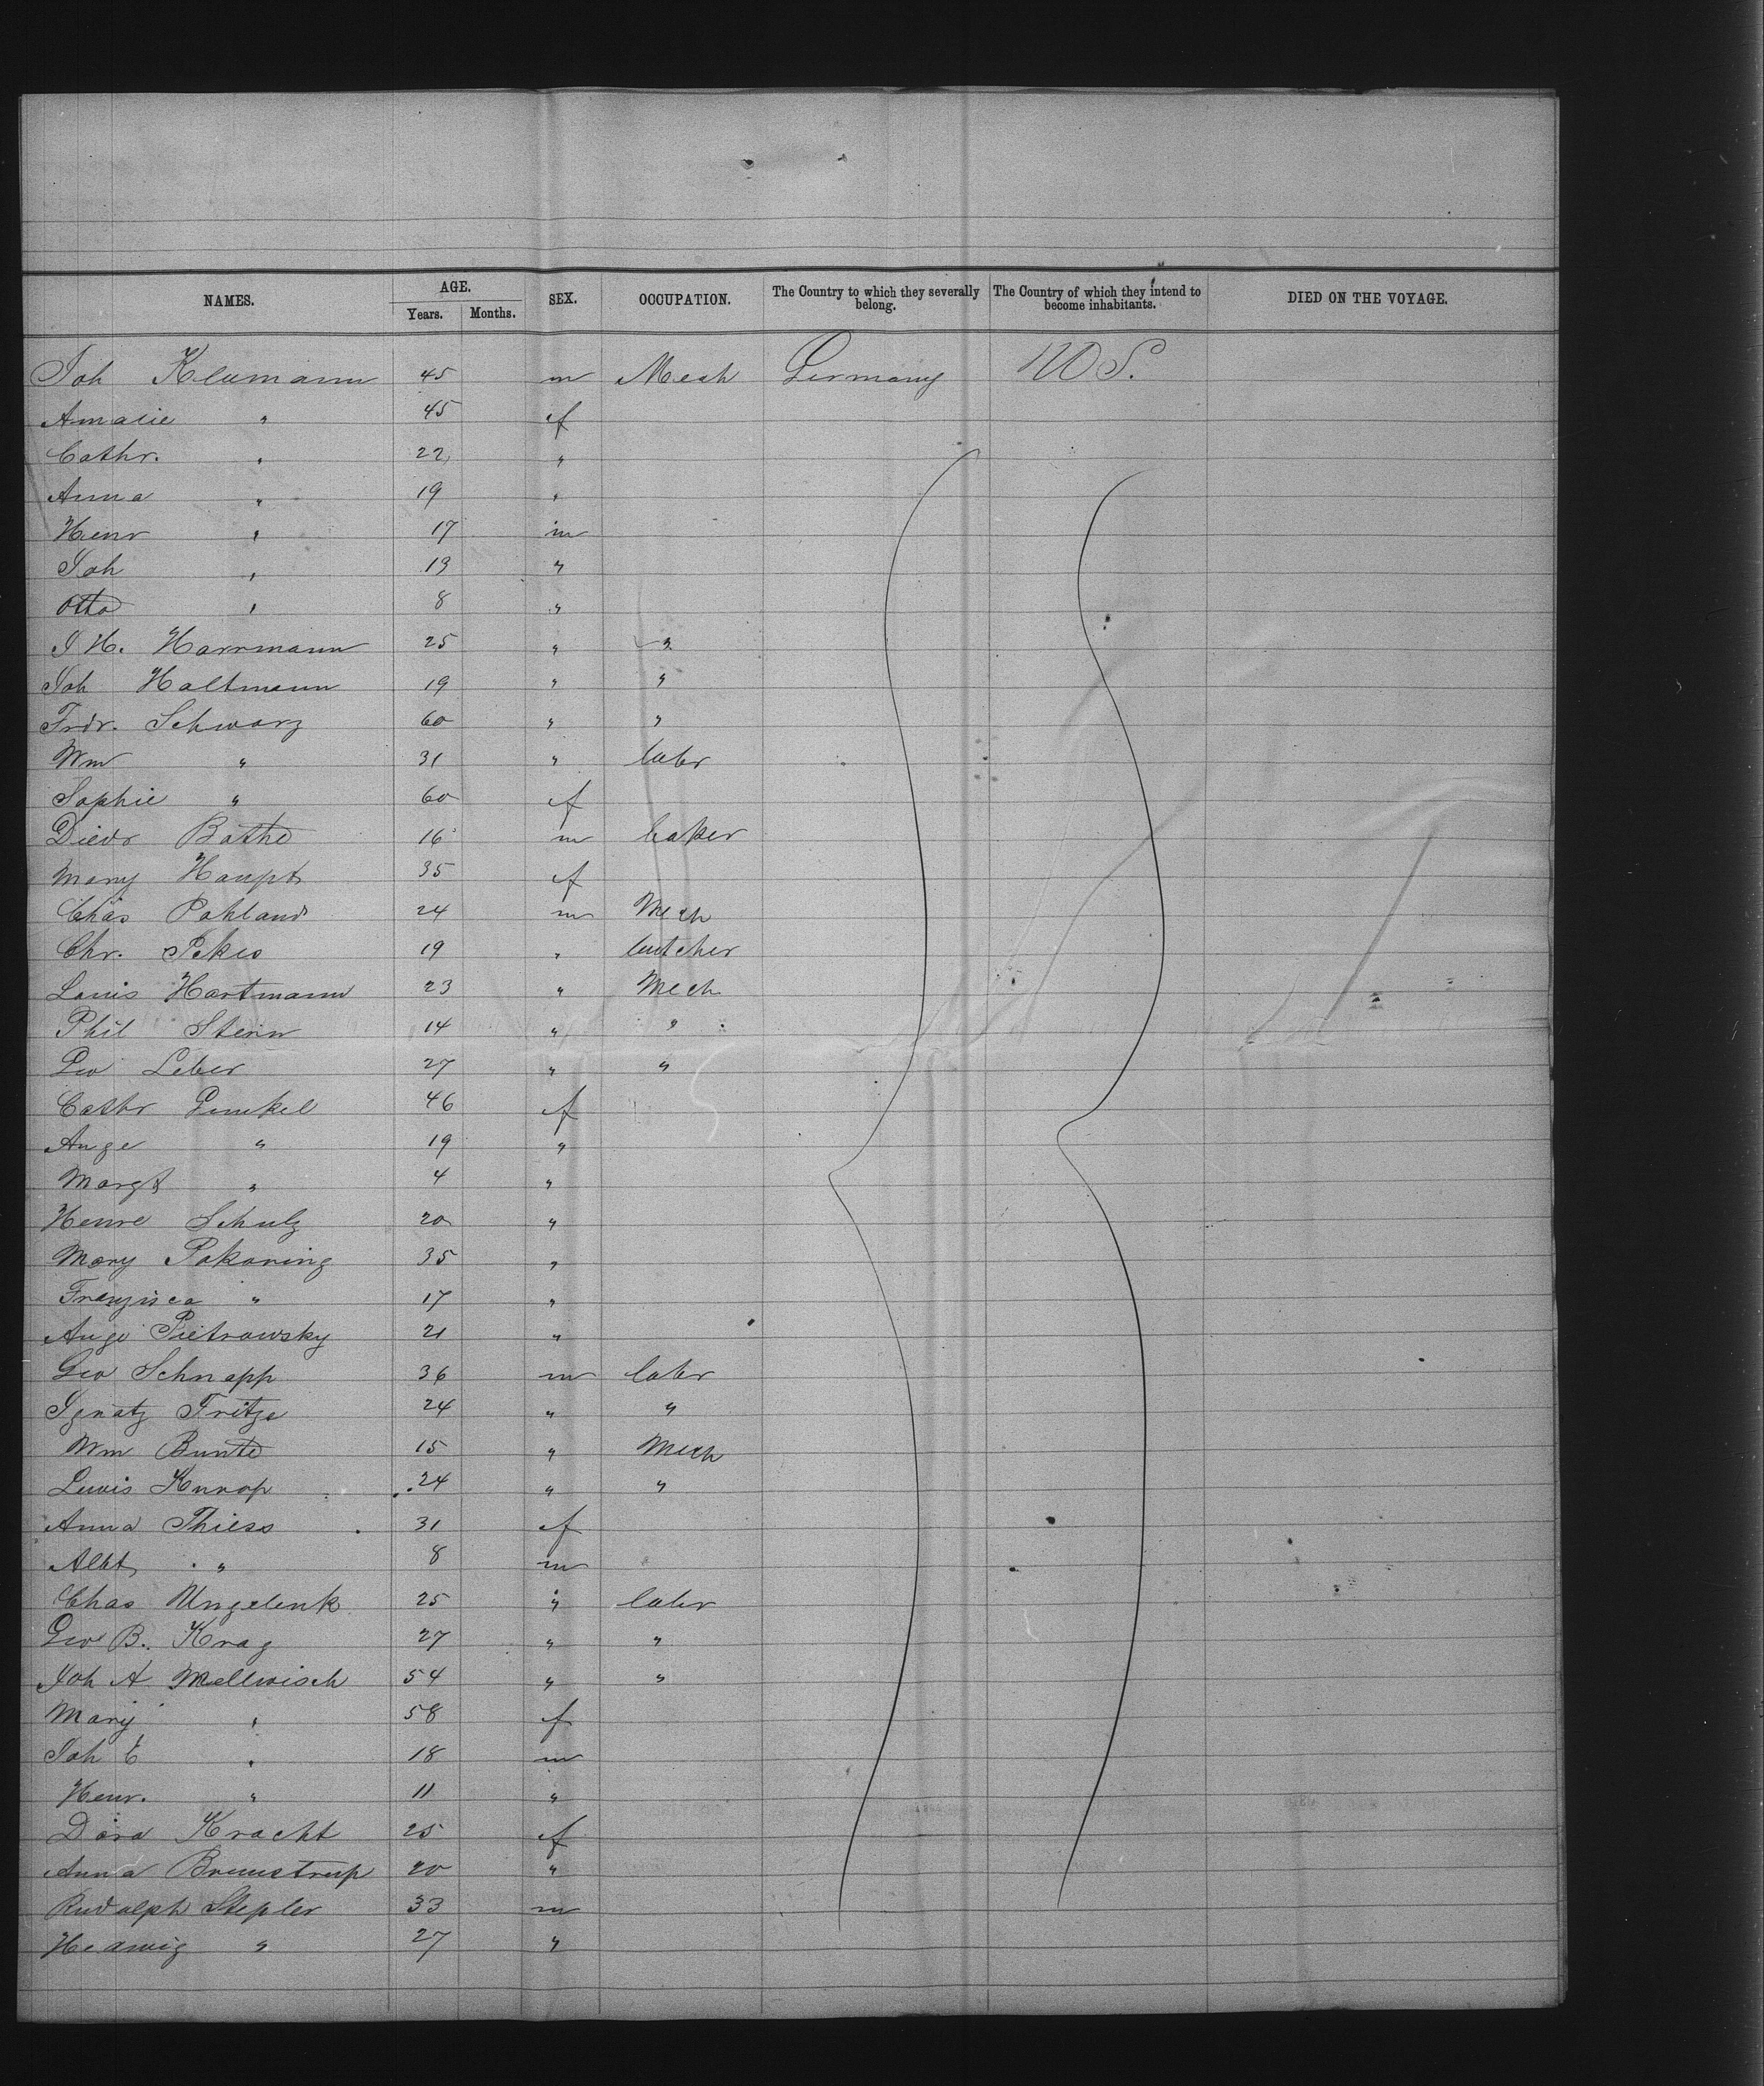 NAMES. AGE. Years. Months. SEX. OCCUPATION. The Country to which they severally belong. The Country of which they intend to become inhabitants. DIED ON THE VOYAGE.
Joh Klumann 45 m Mech Germany U.S.
Amalie " 45 f
Cathr. " 22 "
Anna " 19 "
Henr " 17 m
Joh " 13 "
Otto " 8 "
J H. Harrmann 25 " "
Joh Haltmann 19 " "
Frdr. Schwarz 60 " "
Wm " 31 " labr
Sophie " 60 f
Diedr Bothe 16 m baker
Mary Haupt 35 f
Chas Pohland 24 m Mech
Chr. Pekes 19 " butcher
Louis Hartmann 23 " Mech
Phil Stern 14 " "
Geo Leber 27 " "
Cathr Gunkel 46 f
Auge " 19 "
Margt " 4 "
Henre Schulz 20 "
Mary Pokaring 35 "
Franzisca " 17 "
Auge Pietrowsky 21 "
Geo Schnepp 36 m labr
Ignatz Fritze 24 " "
Wm Bunte 15 " Mech
Lewis Knoop 24 " "
Anna Thiess 31 f
Albt " 8 m
Chas Ungelenk 25 " labr
Geo B. Krag 27 " "
Joh A Mellwisch 54 " "
Mary " 58 f
Joh C " 18 m
Henr. " 11 "
Dora Kracht 25 f
Anna Brunstrup 20 "
Rudolph Stepler 33 m
Hedwig " 27 "